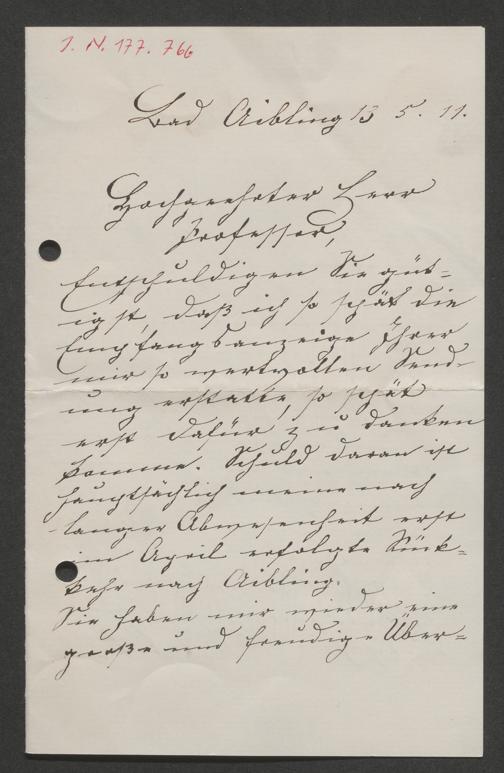 I. N. 177. 766
Bad Aibling 13 5. 11.
Hochgeehrter Herr
Professor,
Entschuldigen Sie güt-
igst, daß ich so spät die
Empfangsanzeige Ihrer
mir so wertvollen Send-
ung erstatte, so spät
erst dafür zu danken
komme. Schuld daran ist
hauptsächlich meine nach
langer Abwesenheit erst
im April erfolgte Rück-
kehr nach Aibling.
Sie haben mir wieder eine
große und freudige Über-